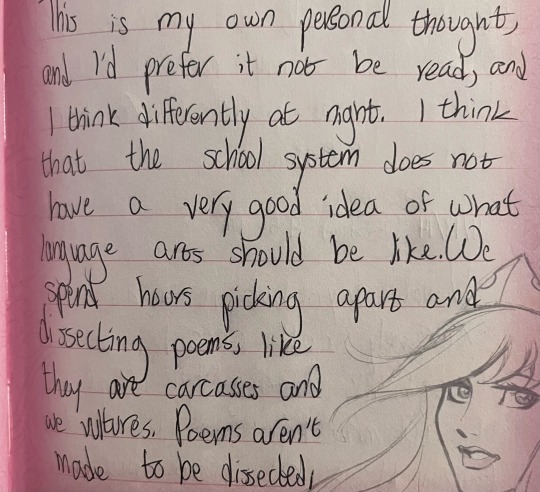 This is my own personal thought,
and I'd prefer it not be read, and
I think differently at night. I think
that the school system does not
have a very good idea of what
language arts should be like. We
spend hours picking apart and
dissecting poems, like
they are carcasses and
we vultures. Poems aren't
made to be dissected,